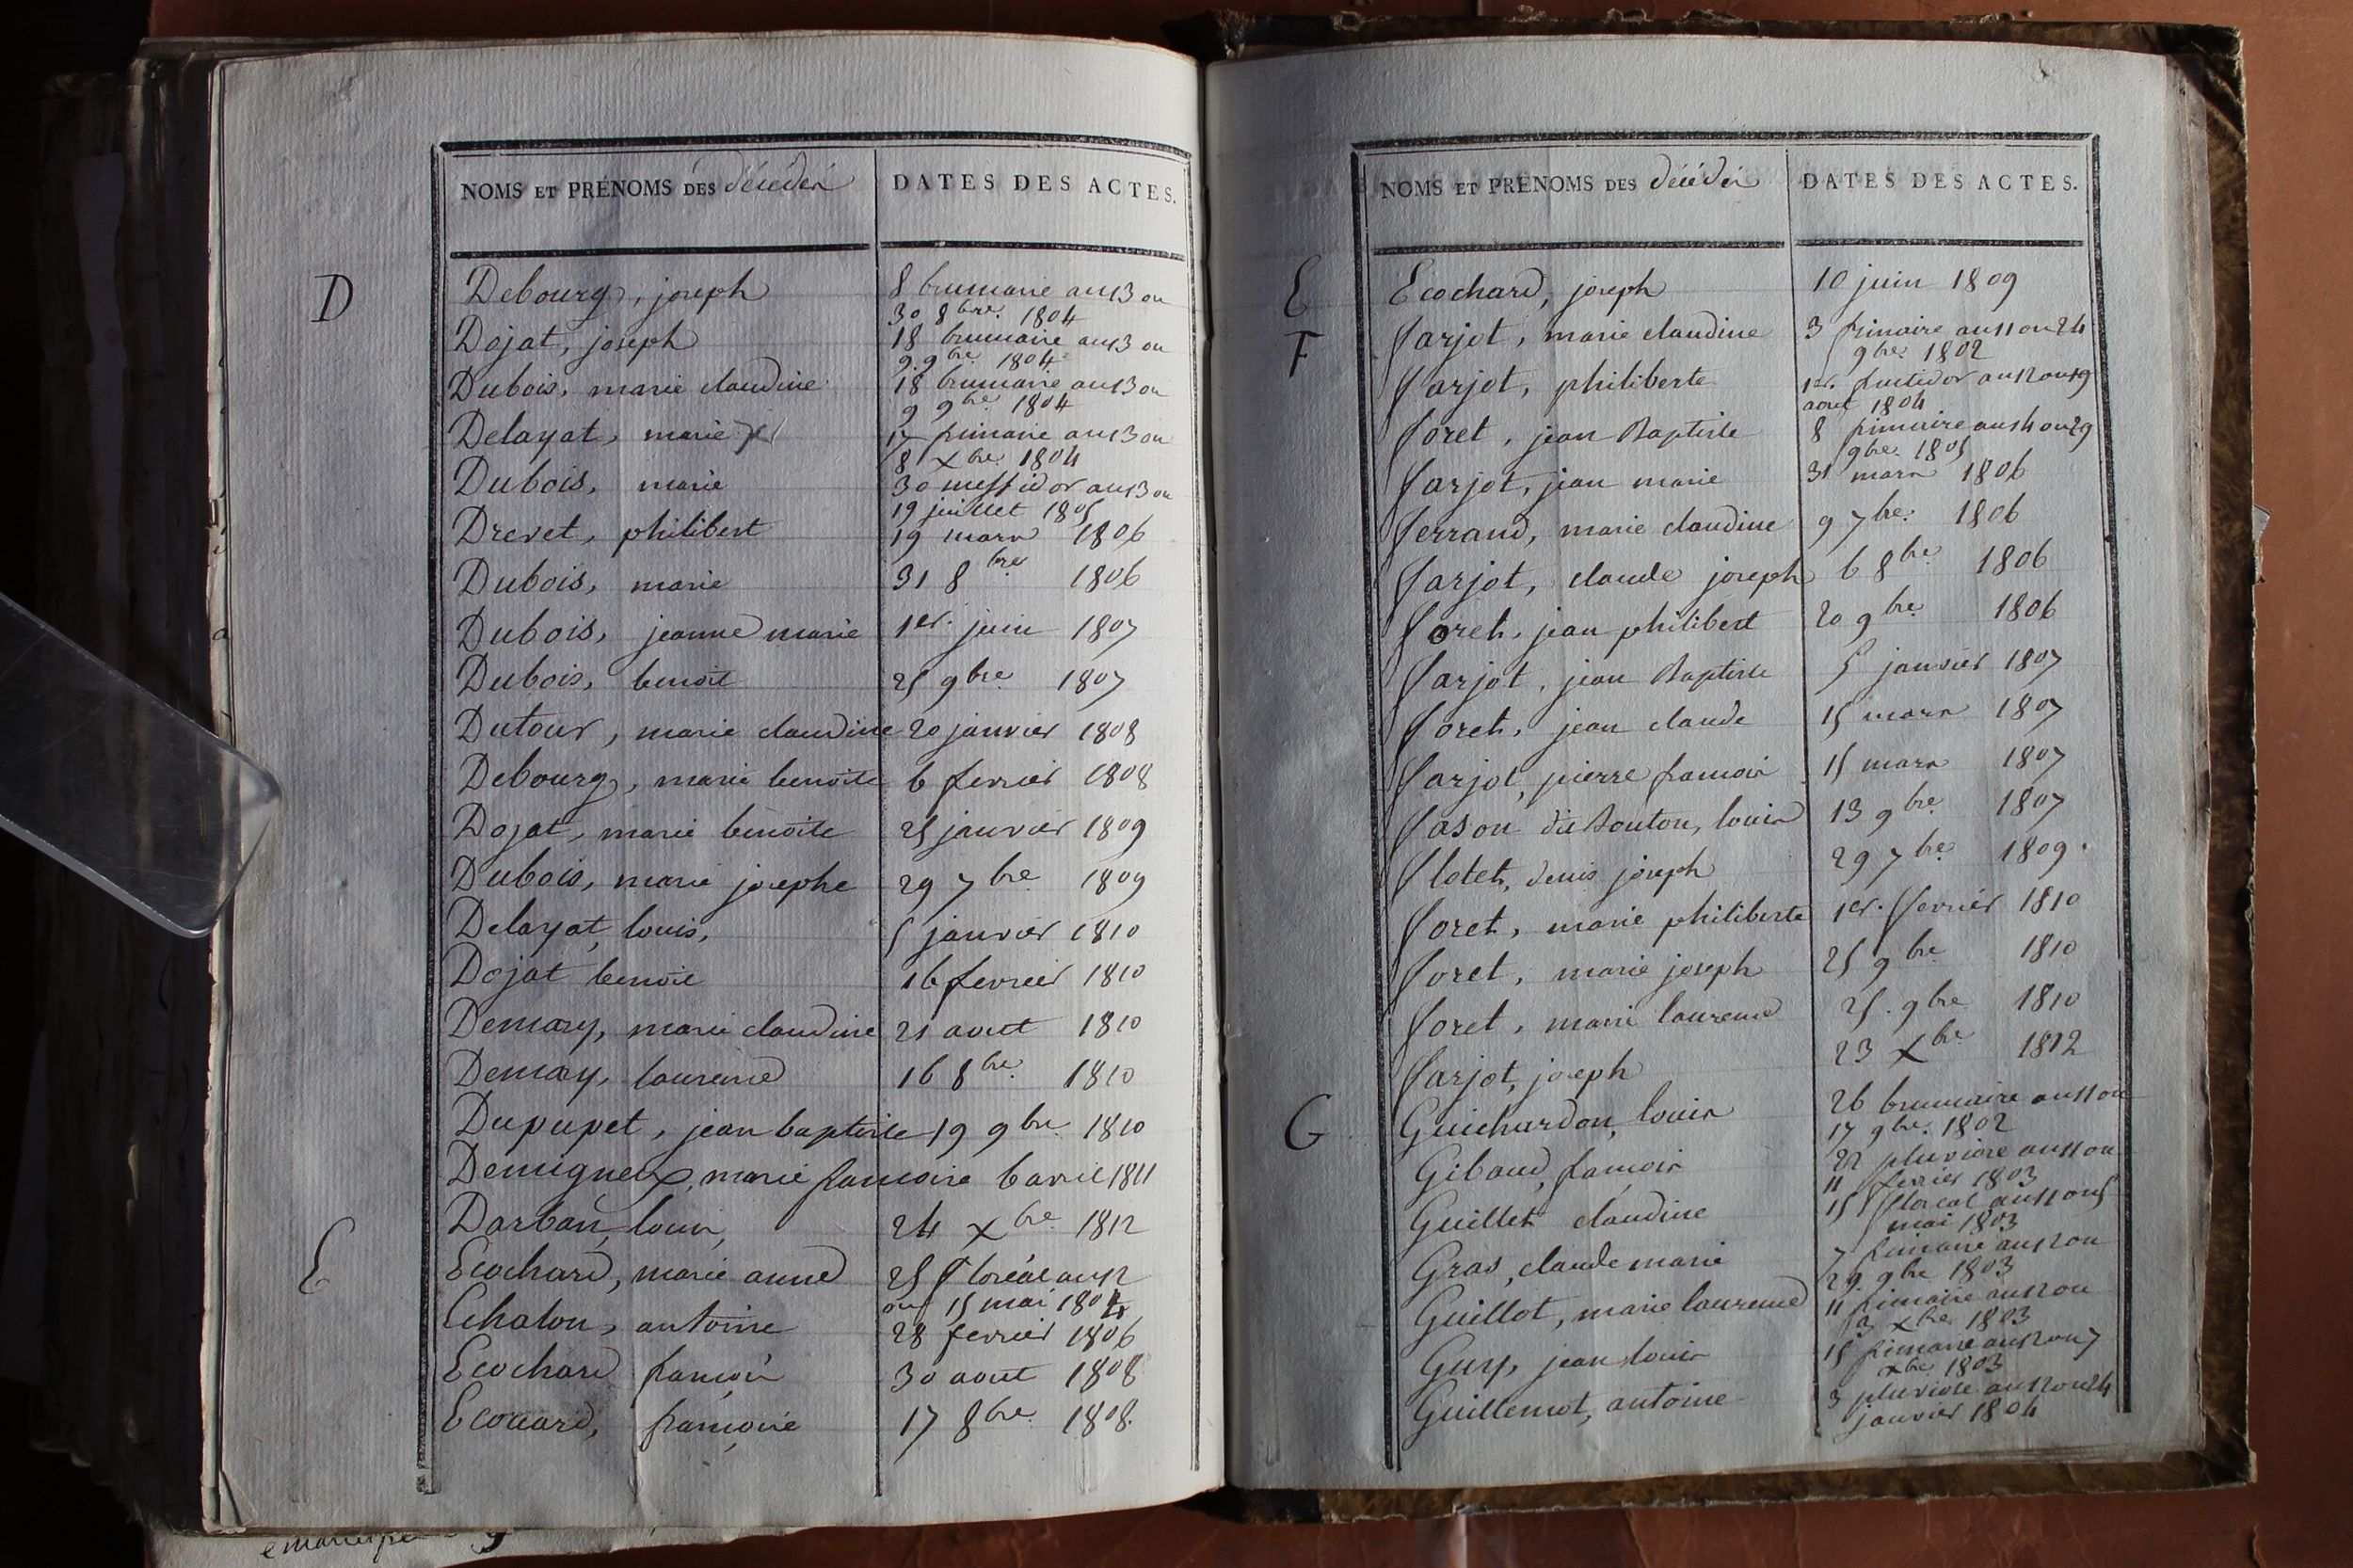 NOMS ET PRÉNOMS DES décédés
DATES DES ACTES.
D
Debourg, joseph
8 brumaire an 13 ou
30 8bre. 1804
Dojat, joseph
18 brumaire an 13 ou
9. 9bre 1804
Dubois, marie claudine
18 brumaire an 13 ou
9 9bre 1804
Delayat, marie
17 frimaire an 13 ou
8 Xbre 1804
Dubois, marie
30 messidor an 13 ou
19 juillet 1805
Drevet, philibert 19 mars 1806
Dubois, marie 31 8bre 1806
Dubois, jeanne marie 1er. juin 1807
Dubois, benoit 25 9bre 1807
Dutour, marie claudine 20 janvier 1808
Debourg, marie benoite 6 fevrier 1808
Dojat, marie benoite 25 janvier 1809
Dubois, marie josephe 29 7bre 1809
Delayat, louis, 5 janvier 1810
Dojat benoit 16 fevrier 1810
Demay, marie claudine 21 aout 1810
Demay, laurence 16 8bre. 1810
Dupupet, jean baptiste 19 9bre 1810
Demigneux, marie francoise 6 avril 1811
Darban, louis, 24 Xbre 1812
E
Ecochard, marie anne
25 floréal an 12
ou 15 mai 1804
Echalon, antoine 28 fevrier 1806
Ecochard françois 30 aout 1808
Ecochard, françoise 17 8bre 1808.
NOMS ET PRÉNOMS DES décédés
DATES DES ACTES.
E
Ecochard, joseph 10 juin 1809
F
farjot, marie claudine
3 frimaire an 11 ou 24
9bre. 1802
farjot, philiberte
1er. fructidor an 12 ou 19
aout 1804
foret, jean Baptiste
8 frimaire an 14 ou 29
9bre. 1805
farjot, jean marie 31 mars 1806
ferrand, marie claudine 9 7bre. 1806
farjot, claude joseph 6 8bre 1806
foret, jean philibert 20 9bre. 1806
farjot, jean Baptiste 5 janvier 1807
foret, jean claude 15 mars 1807
farjot, pierre francois 15 mars 1807
fason dit Bouton, louis 13 9bre. 1807
flotet, denis joseph 29 7bre 1809.
foret, marie philiberte 1er. fevrier 1810
foret, marie joseph 25 9bre 1810
foret, marie laurence 25. 9bre 1810
farjot, joseph 23 Xbre 1812
G
Guichardon, louis
26 brumaire an 11 ou
17 9bre. 1802
Gibaud, francois
22 pluviose an 11 ou
11 fevrier 1803
Guillet claudine
15 floreal an 11 ou 5
mai 1803
Gras, claude marie
7 frimaire an 12 ou
29 9bre 1803
Guillot, marie laurence
11 frimaire an 12 ou
3 xbre 1803
Guy, jean louis
15 frimaire an 12 ou 7
xbre 1803
Guillemot, antoine
3 pluviose an 12 ou 24
janvier 1804